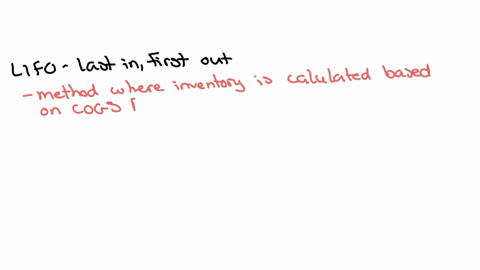 LIFO - last in, first out
- method where inventory is calulated based
on COGS [